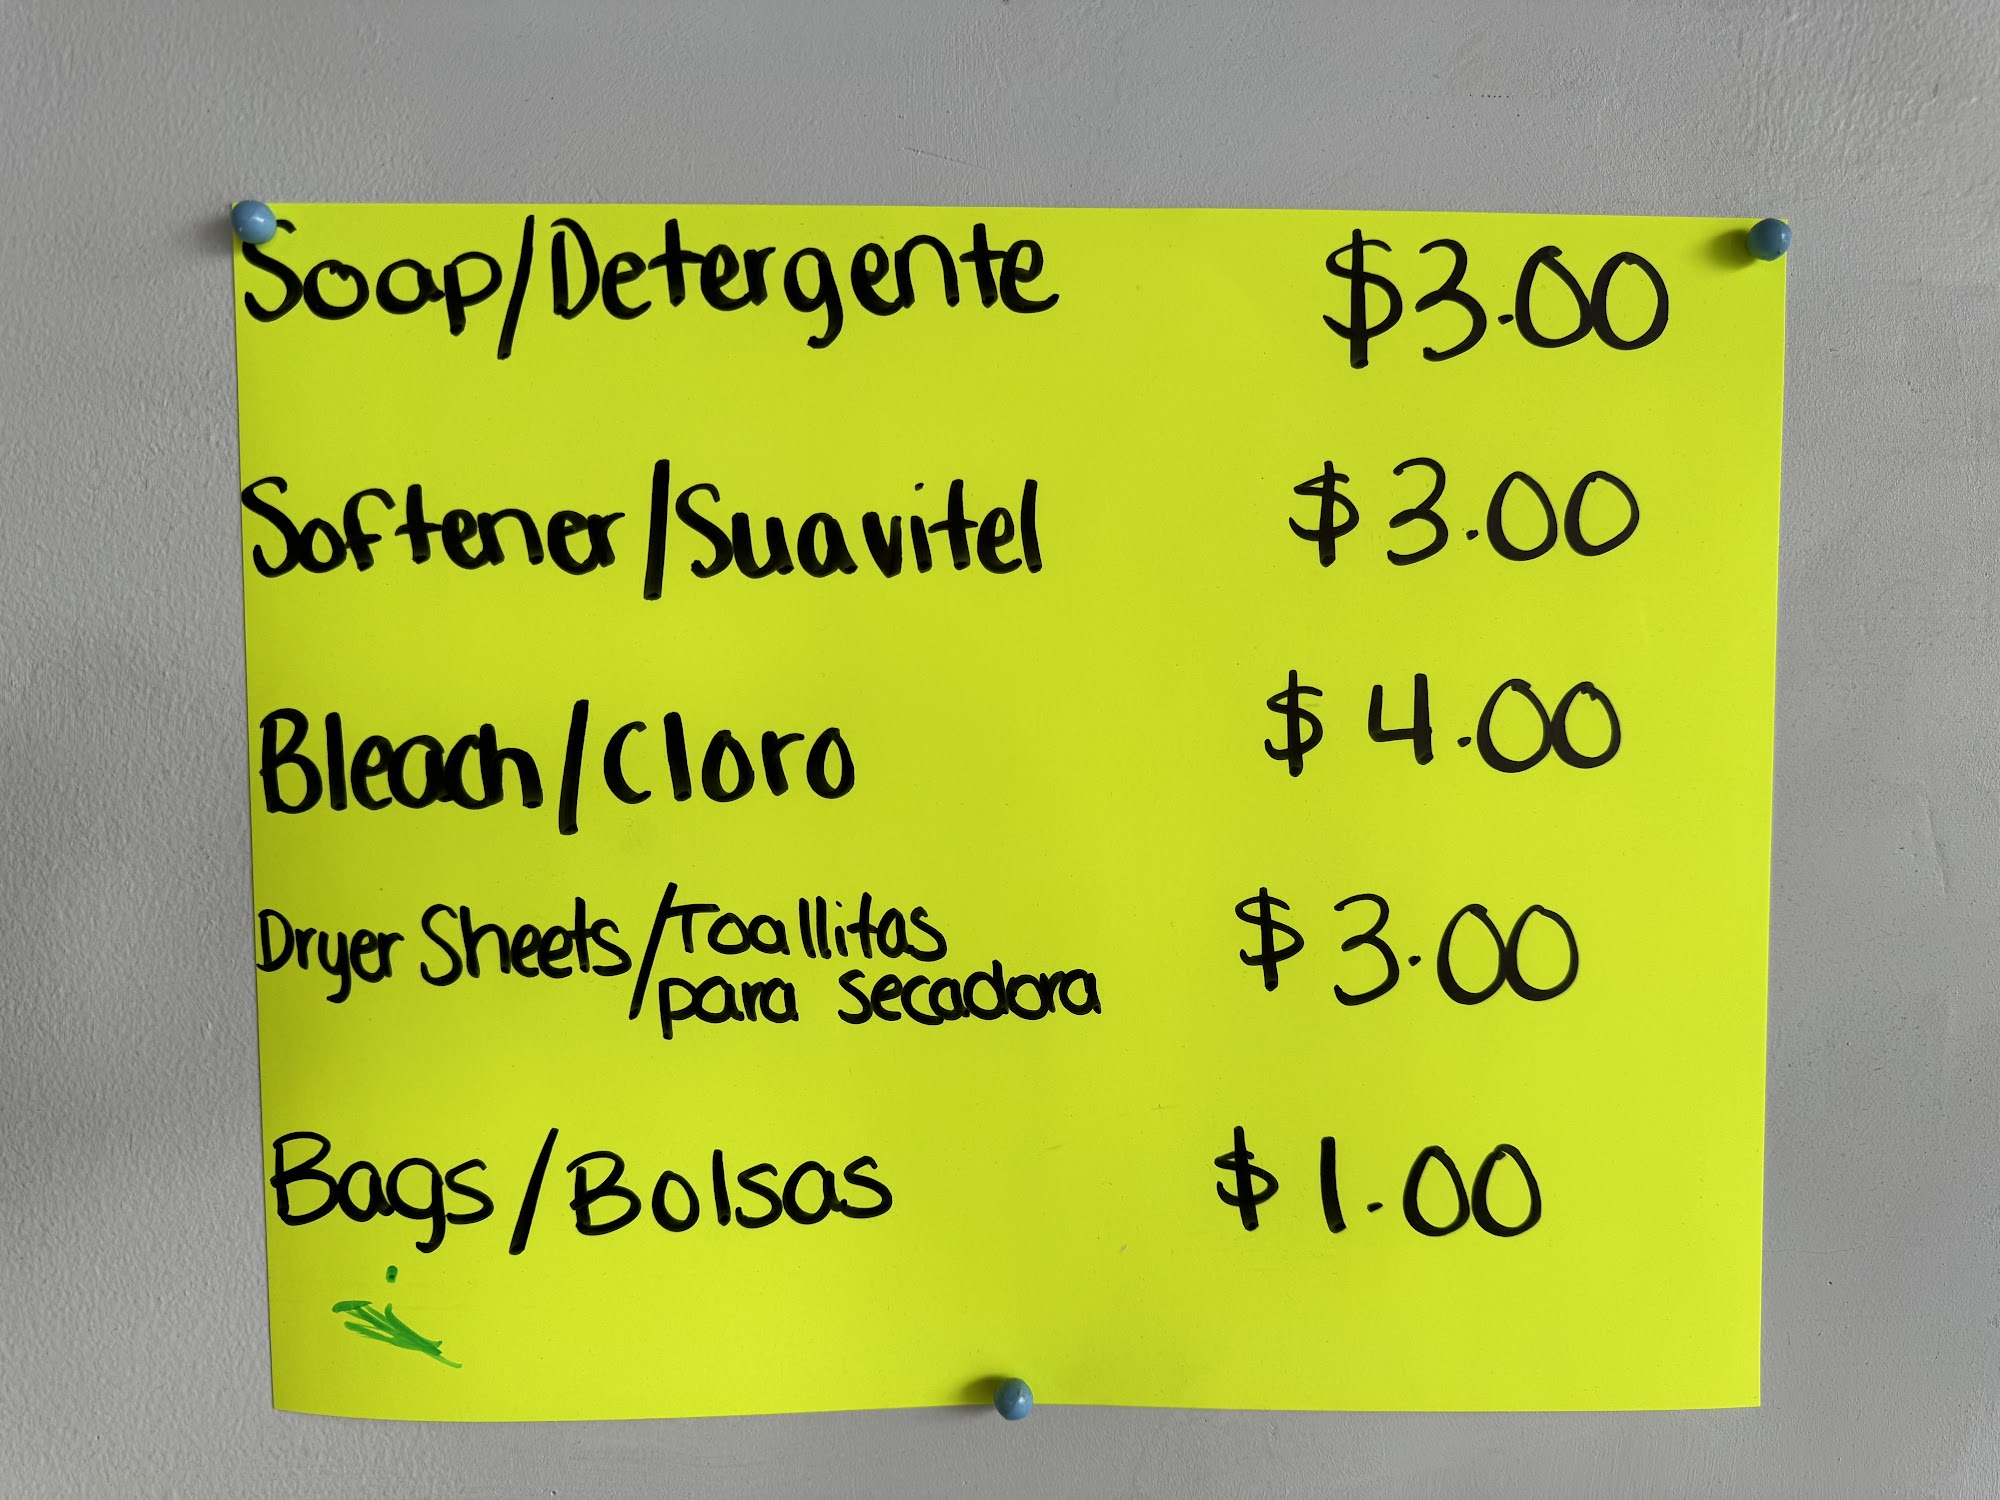 Soap/Detergente $3.00
Softener/Suavitel $3.00
Bleach/Cloro $4.00
Dryer Sheets/Toallitas
para secadora $3.00
Bags/Bolsas $1.00